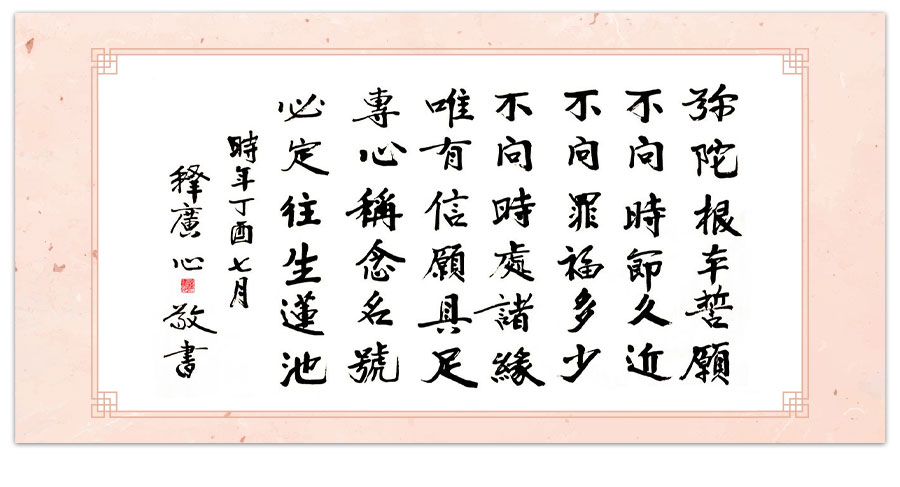 弥陀根本誓願
不問時節久近
不問罪福多少
不問時處諸緣
唯有信願具足
專心稱念名號
必定往生蓮池
時年丁酉七月
釋廣心敬書